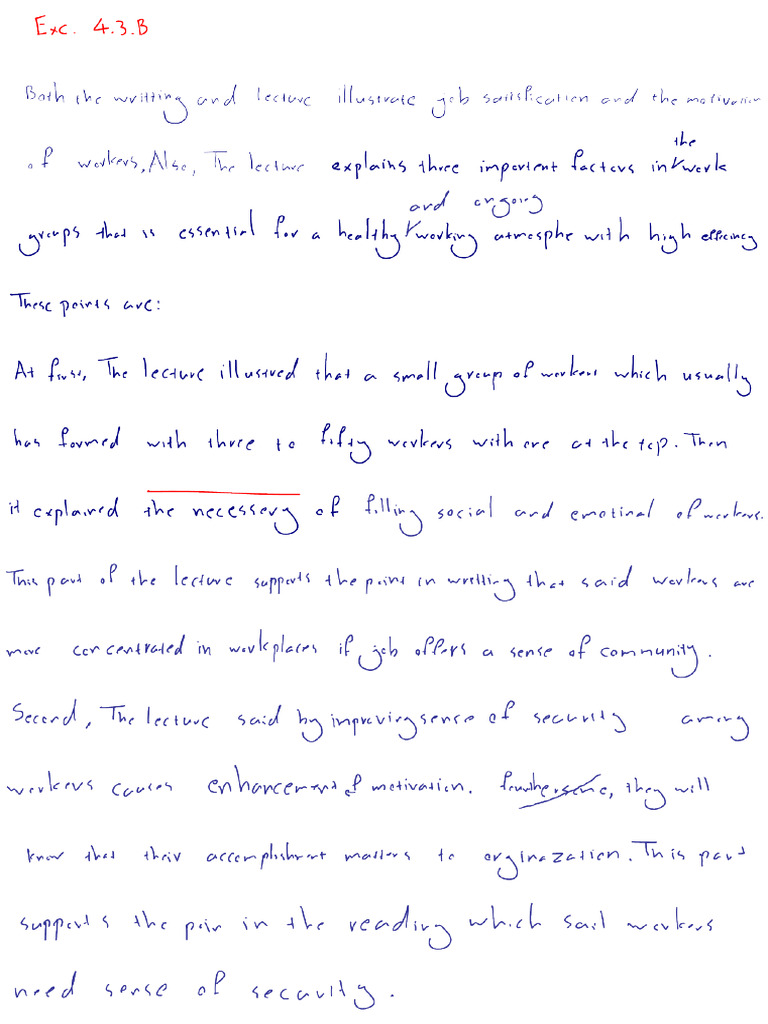 Exc. 4.3.B
Both the writting and lecture illustrate job satisfication and the motivation
of workers, Also, The lecture explains three importent factors in the work
groups that is essential for a healthy and ongoing working atmosphe with high efficiency
These points are:
At first, The lecture illustred that a small group of workers which usually
has formed with three to fifty workers with one at the top. Then
it explained the necessery of filling social and emotinal of workers.
This part of the lecture supports the point in writting that said workers are
more concentrated in workplaces if job offers a sense of community.
Second, The lecture said by improving sense of security among
workers causes enhancement of motivation. , they will
know that their accomplishment matters to orginazation. This part
supports the poin in the reading which sail workers
need sense of security.